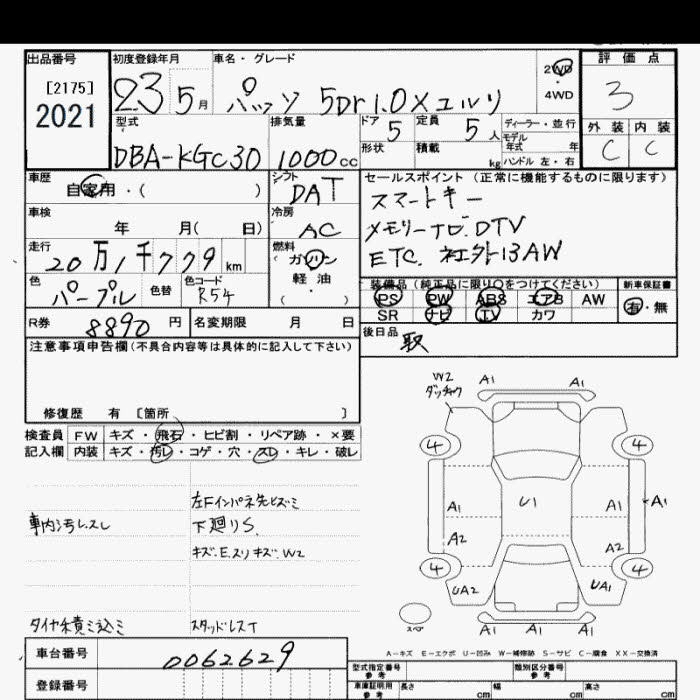 出品番号 初度登録年月 車名・グレード 2WD 評価点
[2175] 23 5月 パッソ 5Dr 1.0Xユルリ 4WD 3
2021 型式 排気量 ドア 5 定員 5人 ディーラー・並行 外装 内装
DBA-KGC30 1000cc 形状 積載 kg モデル年式 年 ハンドル 左・右 C C
車歴 自家用・( ) シフト DAT セールスポイント(正常に機能するものに限ります)
車検 年 月( 日) 冷房 AC スマートキー
メモリーナビ.DTV
走行 20万1千779km 燃料 ガソリン ETC. 社外13AW
色 パープル 色替 色コード R54 軽油・( )
装備品(純正品に限り〇をつけてください) 新車保証書
PS PW ABS エアB AW 有・無
R券 8890円 名変期限 月 日 SR ナビ TV カワ
注意事項申告欄(不具合内容等は具体的に記入して下さい) 後日品 取
修復歴 有 [箇所 ]
検査員 FW キズ・飛石・ヒビ割・リペア跡・×要
記入欄 内装 キズ・汚レ・コゲ・穴・スレ・キレ・破レ
W2 A1 A1
ダッチャク
4 4
左Fインパネ先ヒズミ A1 U1 A1 A1
車内汚レスレ 下廻りS.
キズ.E.スリキズ.W2 A2 A2
4 4
UA2 UA1
タイヤ積ミ込ミ スタッドレスT スペア A1 A1 A1
車台番号 0062629 A-キズ E-エクボ U-凹み W-補修跡 S-サビ C-腐食 XX-交換済
型式指定番号 参考 類別区分番号 参考
登録番号 車庫証明用 参考 長さ cm 幅 cm 高さ cm